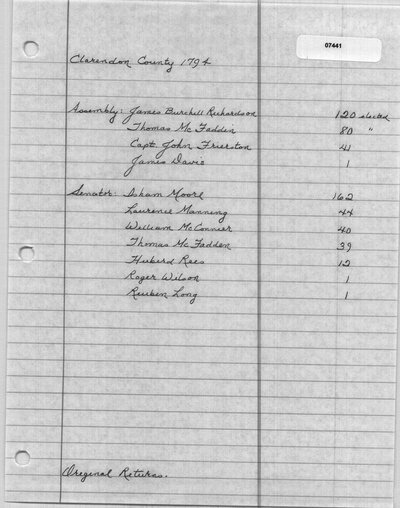 07441
Clarendon County 1794
Assembly: James Burchell Richardson 120 elected
Thomas McFadden 80 "
Capt. John Frierston 41
James Davis 1
Senator: Isham Moore 162
Laurence Manning 44
William McConnier 40
Thomas McFadden 39
Huberd Rees 12
Roger Wilson 1
Reuben Long 1
Original Returns.